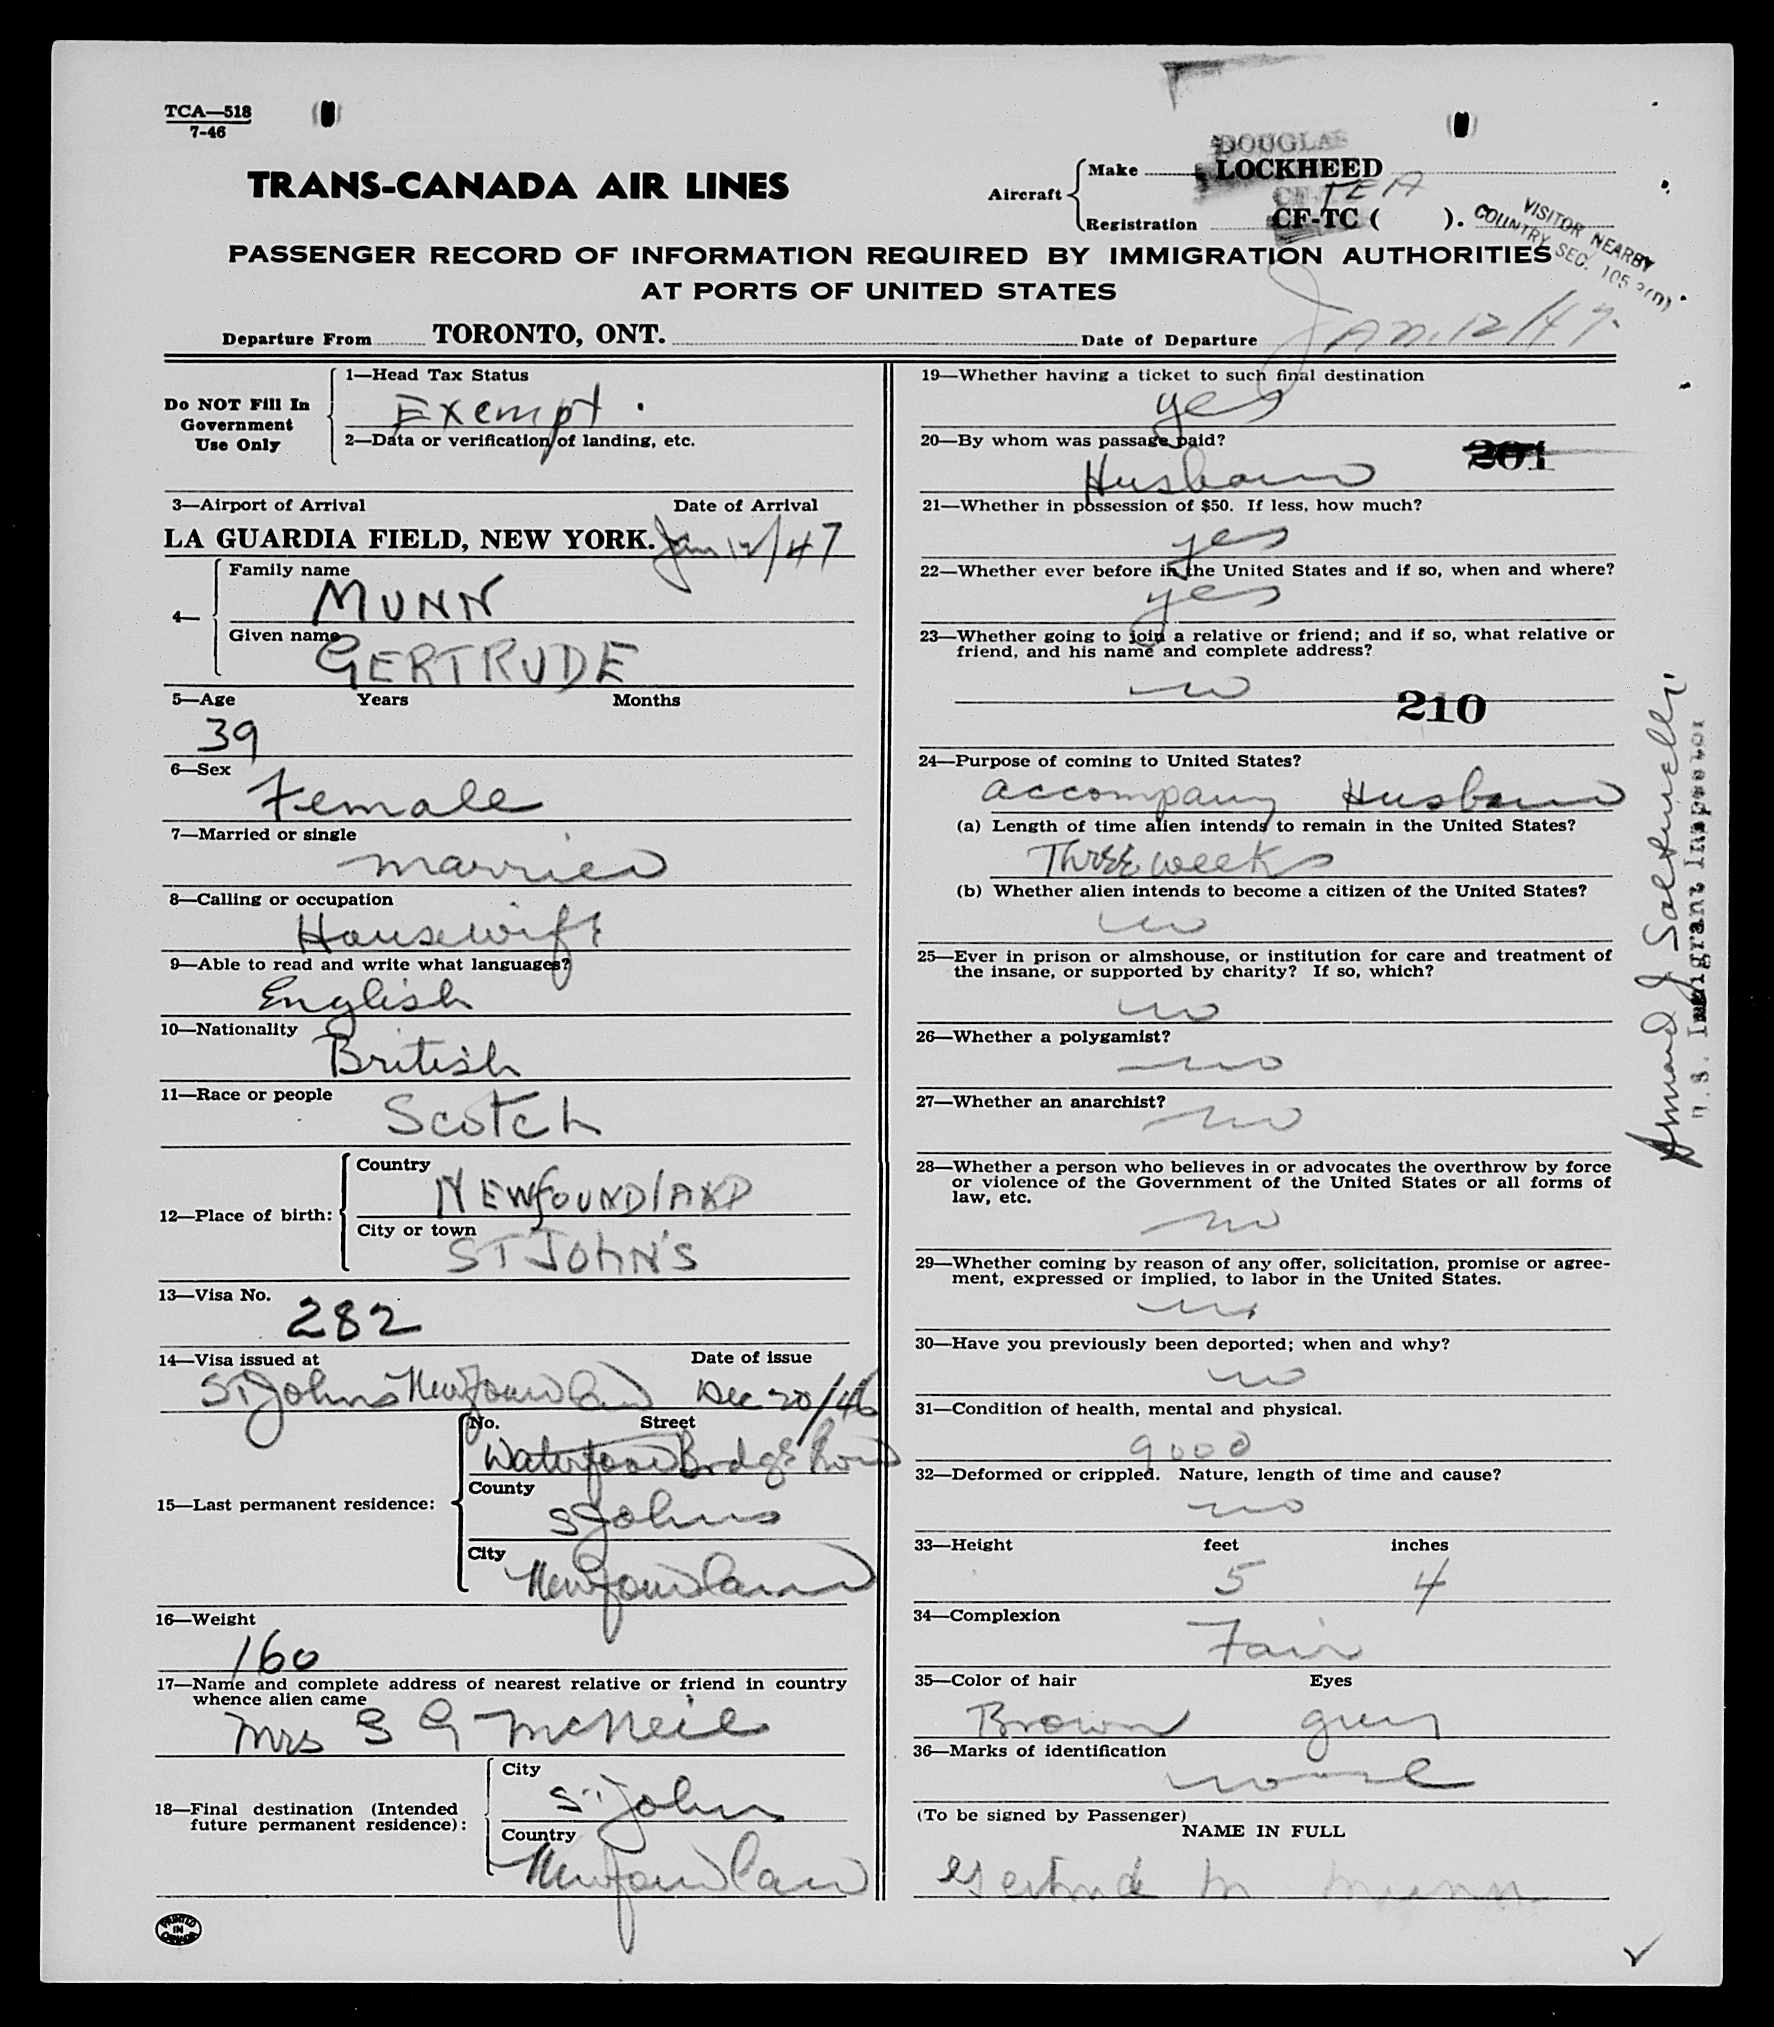 TCA—518
7-46
TRANS-CANADA AIR LINES
DOUGLAS
Aircraft
Make LOCKHEED
CF-TEA
Registration CF-TC ( ).
VISITOR NEARBY
COUNTRY SEC.
PASSENGER RECORD OF INFORMATION REQUIRED BY IMMIGRATION AUTHORITIES
AT PORTS OF UNITED STATES
Departure From TORONTO, ONT. Date of Departure Jan. 12/47.
Do NOT Fill In
Government
Use Only
1—Head Tax Status
Exempt.
2—Data or verification of landing, etc.
3—Airport of Arrival Date of Arrival
LA GUARDIA FIELD, NEW YORK. Jan 12/47
4—
Family name
MUNN
Given name
GERTRUDE
5—Age Years Months
39
6—Sex
Female
7—Married or single
married
8—Calling or occupation
Housewife
9—Able to read and write what languages?
English
10—Nationality
British
11—Race or people
Scotch
12—Place of birth:
Country
NEWfOUNDlAND
City or town
ST JOHN'S
13—Visa No.
282
14—Visa issued at Date of issue
St Johns Newfoundland Dec 20/46
15—Last permanent residence:
No. Street
Bridge Road
County
St Johns
City
Newfoundland
16—Weight
160
17—Name and complete address of nearest relative or friend in country
whence alien came
Mrs S G McNeil
18—Final destination (Intended
future permanent residence):
City
St Johns
Country
Newfoundland
PRINTED
IN
CANADA
19—Whether having a ticket to such final destination
yes
20—By whom was passage paid?
201
Husband
21—Whether in possession of $50. If less, how much?
yes
22—Whether ever before in the United States and if so, when and where?
yes
23—Whether going to join a relative or friend; and if so, what relative or
friend, and his name and complete address?
no
210
24—Purpose of coming to United States?
accompany Husband
(a) Length of time alien intends to remain in the United States?
Three weeks
(b) Whether alien intends to become a citizen of the United States?
no
25—Ever in prison or almshouse, or institution for care and treatment of
the insane, or supported by charity? If so, which?
no
26—Whether a polygamist?
no
27—Whether an anarchist?
no
28—Whether a person who believes in or advocates the overthrow by force
or violence of the Government of the United States or all forms of
law, etc.
no
29—Whether coming by reason of any offer, solicitation, promise or agree-
ment, expressed or implied, to labor in the United States.
no
30—Have you previously been deported; when and why?
no
31—Condition of health, mental and physical.
good
32—Deformed or crippled. Nature, length of time and cause?
no
33—Height feet inches
5 4
34—Complexion
Fair
35—Color of hair Eyes
Brown grey
36—Marks of identification
none
(To be signed by Passenger)
NAME IN FULL
Gertrude M Munn
Armand J
U.S. Immigrant Inspector